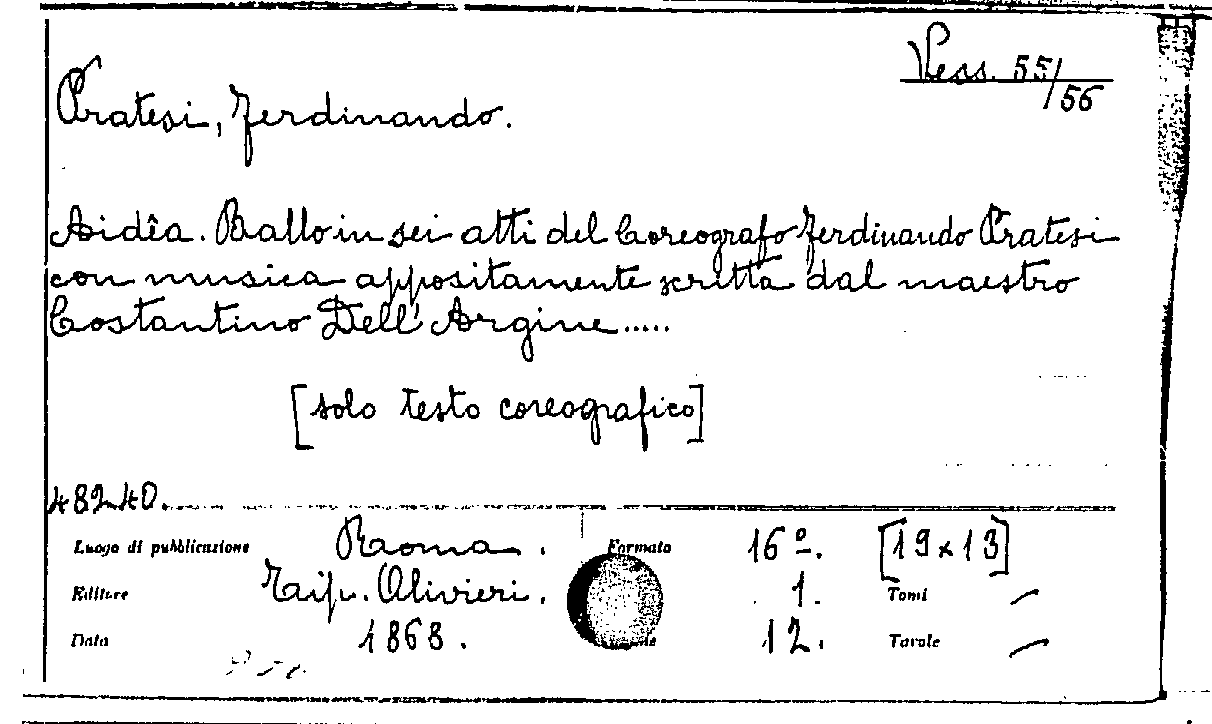 Vess. 55/56
Pratesi, Ferdinando.
Aidêa. Ballo in sei atti del Coreografo Ferdinando Pratesi
con musica appositamente scritta dal maestro
Costantino Dell'Argine.....
[solo testo coreografico]
48240.
Luogo di pubblicazione Roma. Formato 16º. [19 x 13]
Editore Tip. Olivieri. 1. Tomi —
Data 1868. 12. Tavole —